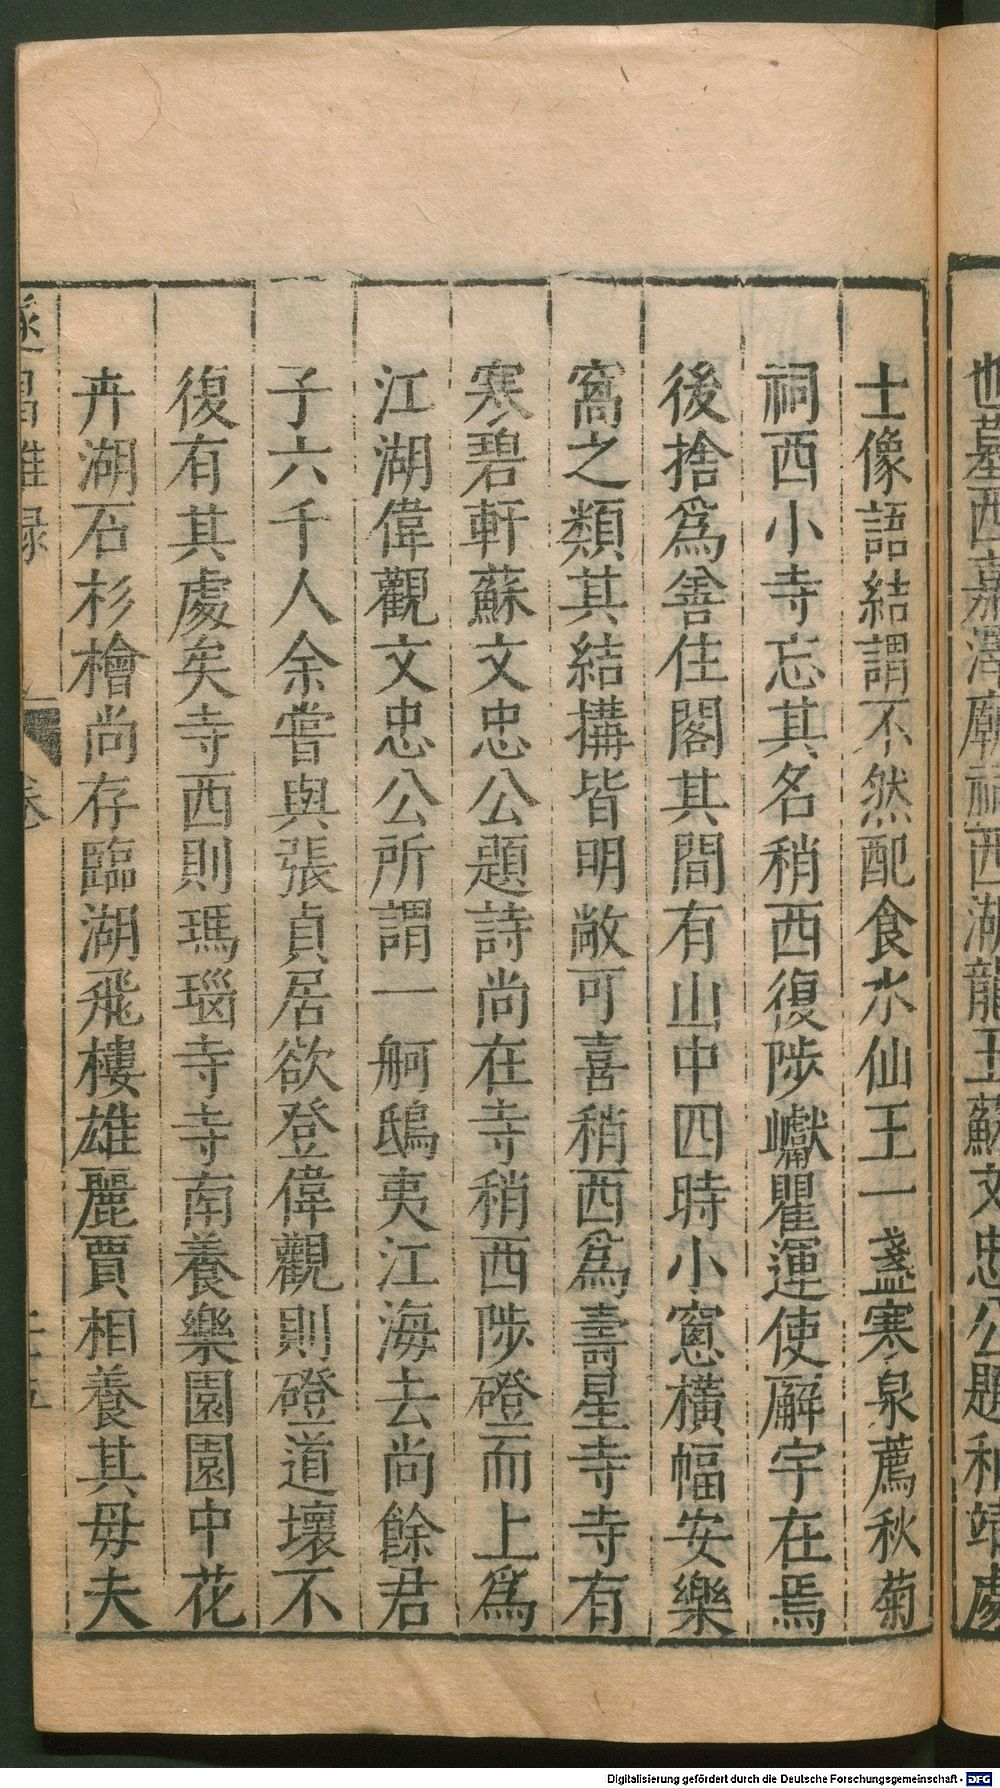 也墓西嘉澤廟祠西湖龍王蘇文忠公題和靖處
士像語結謂不然配食水仙王一盞寒泉薦秋菊
祠西小寺忘其名稍西復陟巘瞿運使廨宇在焉
後捨爲善住閣其間有山中四時小窻橫幅安樂
窩之類其結搆皆明敞可喜稍西爲壽星寺寺有
寒碧軒蘇文忠公題詩尚在寺稍西陟磴而上爲
江湖偉觀文忠公所謂一舸鴟夷江海去尚餘君
子六千人余嘗與張貞居欲登偉觀則磴道壞不
復有其處矣寺西則瑪瑙寺寺南養樂園園中花
卉湖石杉檜尚存臨湖飛樓雄麗賈相養其毋夫
遂昌雜錄
卷
二十五
Digitalisierung gefördert durch die Deutsche Forschungsgemeinschaft - DFG